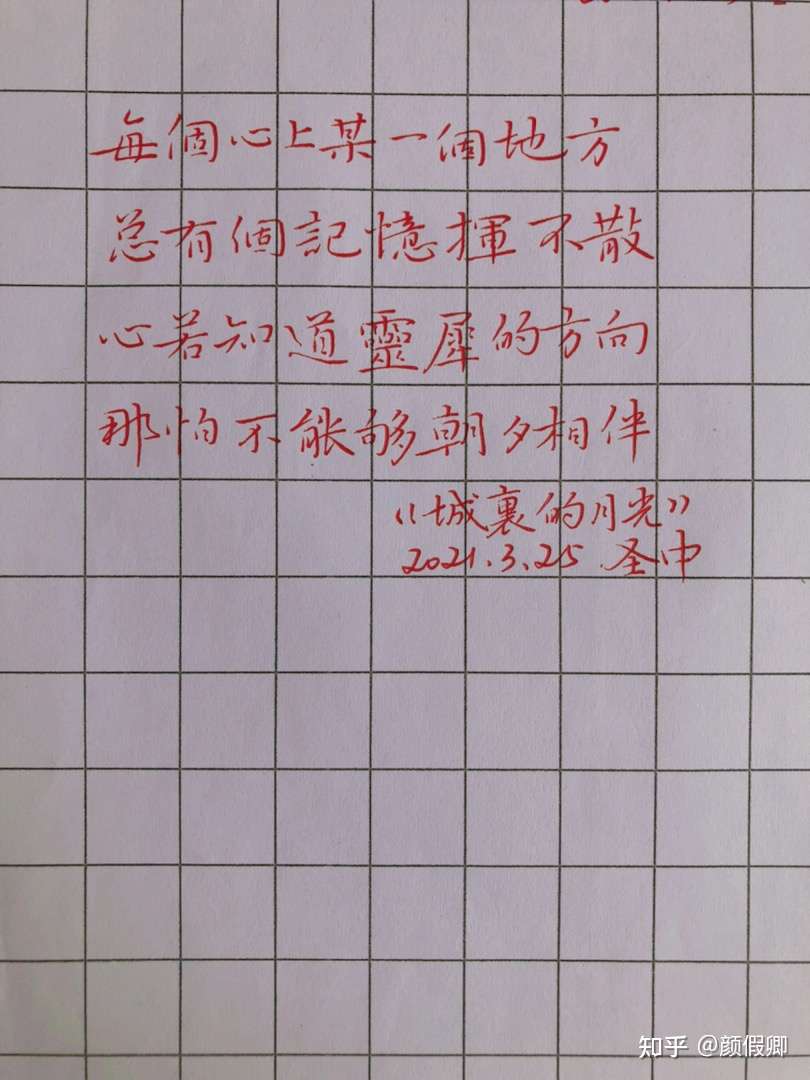 每個心上某一個地方
总有個記憶揮不散
心若知道靈犀的方向
那怕不能够朝夕相伴
《城裏的月光》
2021.3.25 圣中
知乎 @颜假卿